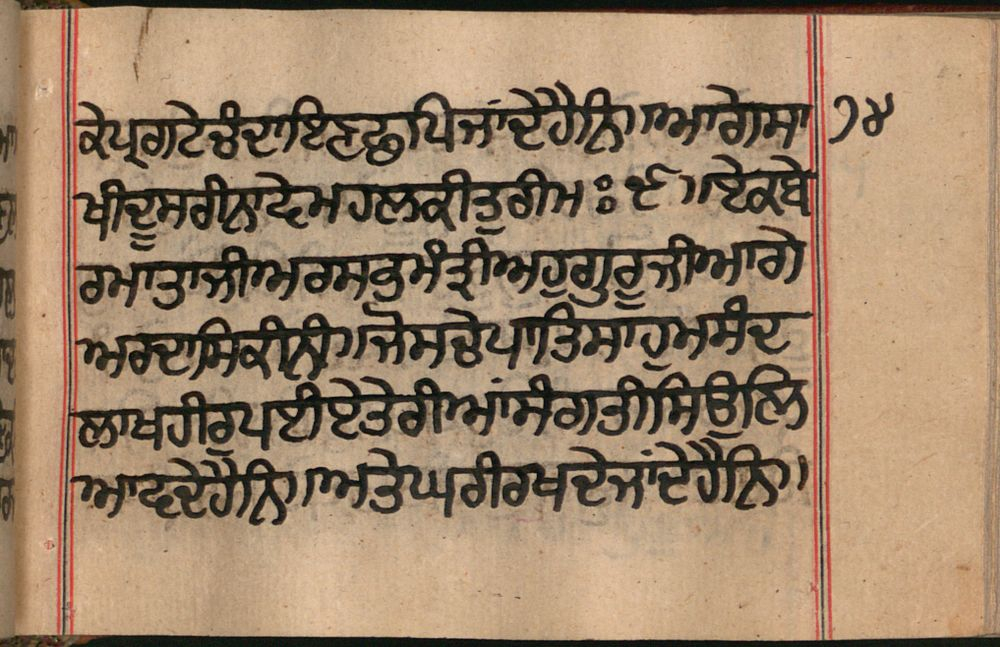 ਕੇਪ੍ਰਗਟੇਚੰਦਾਇਣਛਪਿਜਾਂਦੇਹੈਨਿ॥ਆਗੇਸਾ ੭੪
ਖੀਦੂਸਰੀਨਾਵੇਮਹਲਕੀਤੁਰੀਮਃ ੯॥ਏਕਬੇ
ਰਮਾਤਾਜੀਅਰਸਕੁਮੰਡੀਅਹੁਗੁਰੂਜੀਆਗੇ
ਅਰਦਾਸਿਕੀਨੀ॥ਜੋਸਚੇਪਾਤਿਸਾਹੁਮਸੰਦ
ਲਾਖਹੀਰੁਪਈਏਤੇਰੀਆਂਸੰਗਤੀਸਿਉਲਿ
ਆਵਦੇਹੈਨਿ॥ਅਤੇਘਰੀਰਖਦੇਜਾਂਦੇਹੈਨਿ॥